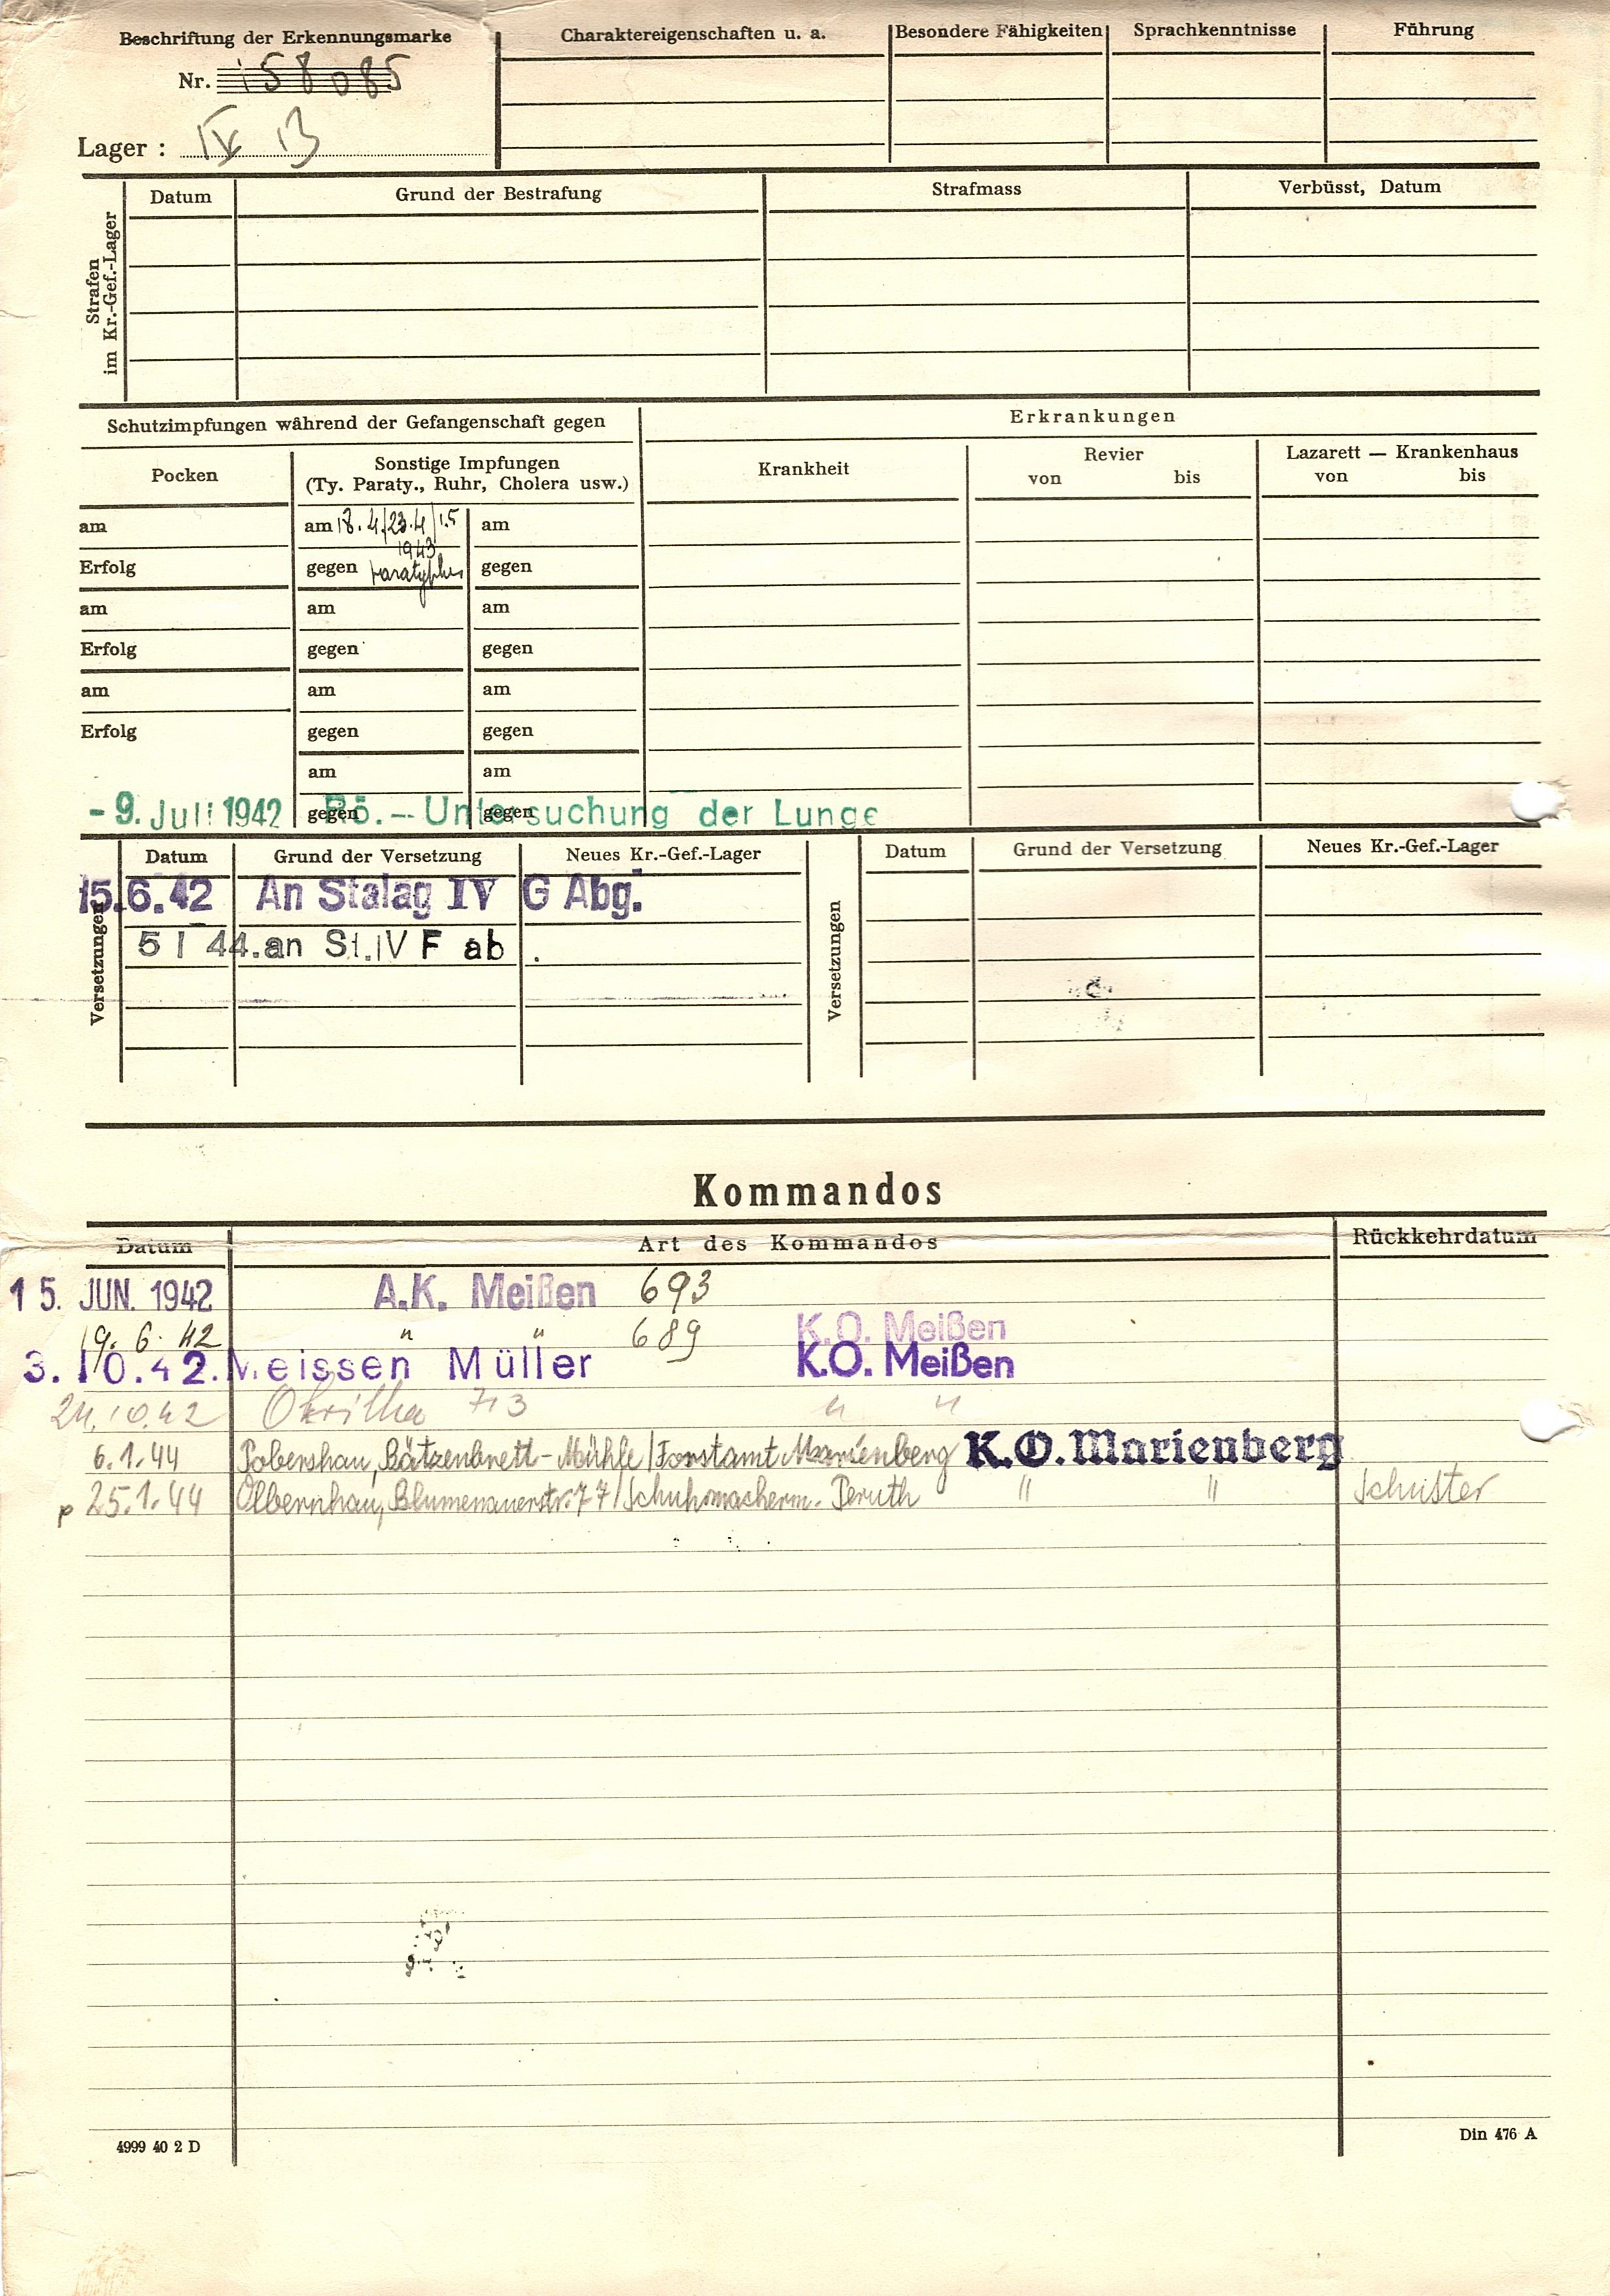 Beschriftung der Erkennungsmarke
Nr. 158085
Lager : IV B
Charaktereigenschaften u. a.
Besondere Fähigkeiten
Sprachkenntnisse
Führung
Strafen im Kr.-Gef.-Lager
Datum Grund der Bestrafung Strafmass Verbüsst, Datum
Schutzimpfungen während der Gefangenschaft gegen
Erkrankungen
Pocken
Sonstige Impfungen
(Ty. Paraty., Ruhr, Cholera usw.)
Krankheit
Revier
von bis
Lazarett — Krankenhaus
von bis
am am 18.4/23.4/1.5 am
1943
Erfolg gegen Paratyphus gegen
am am am
Erfolg gegen gegen
am am am
Erfolg gegen gegen
am am
gegen gegen
- 9. Juli 1942 Rö. -- Untersuchung der Lunge
Versetzungen
Datum Grund der Versetzung Neues Kr.-Gef.-Lager
15.6.42 An Stalag IV G Abg.
5 1 44. an St. IV F ab .
Versetzungen
Datum Grund der Versetzung Neues Kr.-Gef.-Lager
Kommandos
Datum Art des Kommandos Rückkehrdatum
15. JUN. 1942 A.K. Meißen 693
19. 6. 42 " " 689 K.O. Meißen
3. 10. 42. Meissen Müller K.O. Meißen
24.10.42 Okrilla 713 " "
6.1.44 Pobershau, Bätzenbrett-Mühle/Forstamt Marienberg K.O. Marienberg
p 25.1.44 Olbernhau, Blumenauerstr. 77/Schuhmacherm. Peruth " " Schuster
4999 40 2 D
Din 476 A